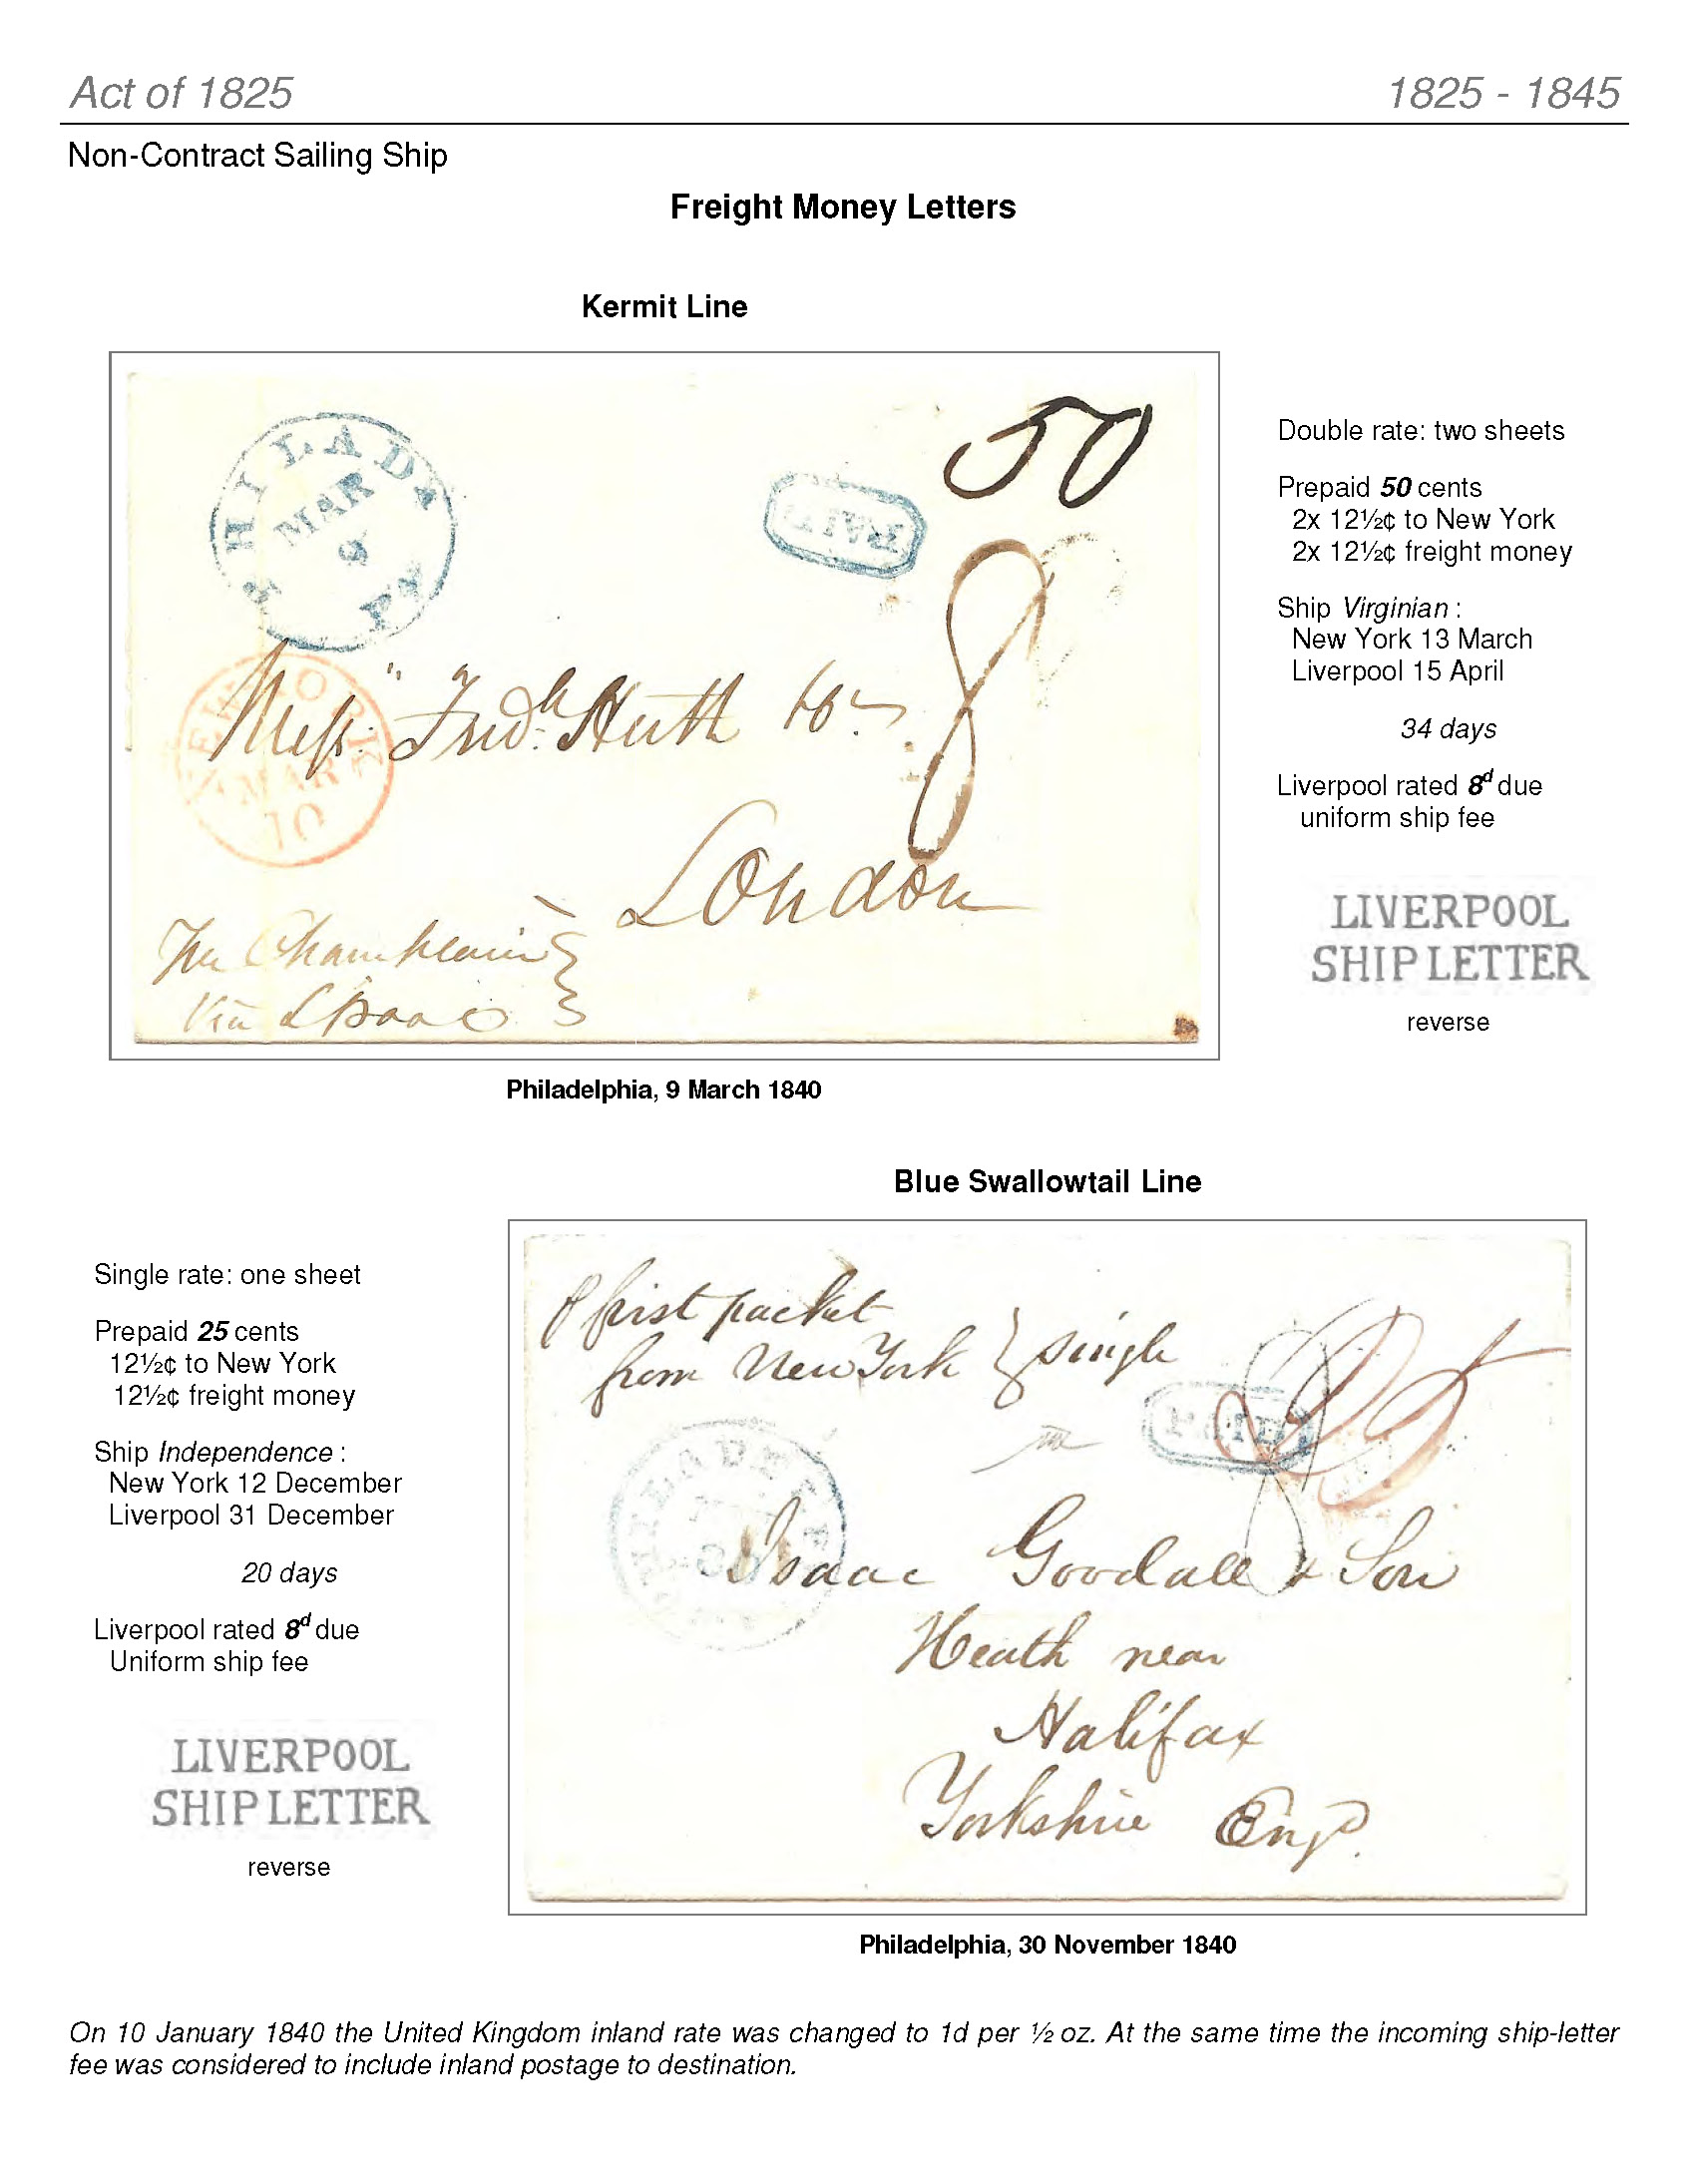 Act of 1825
1825 - 1845
Non-Contract Sailing Ship
Freight Money Letters
Kermit Line
PHILADA
MAR
9
PA
PAID
50
8
NEW YORK
MAR
10
Mess: Fredk Huth Co
London
Via L'pool
Double rate: two sheets
Prepaid 50 cents
2x 12½¢ to New York
2x 12½¢ freight money
Ship Virginian :
New York 13 March
Liverpool 15 April
34 days
Liverpool rated 8d due
uniform ship fee
LIVERPOOL
SHIP LETTER
reverse
Philadelphia, 9 March 1840
Blue Swallowtail Line
Single rate: one sheet
Prepaid 25 cents
12½¢ to New York
12½¢ freight money
Ship Independence :
New York 12 December
Liverpool 31 December
20 days
Liverpool rated 8d due
Uniform ship fee
LIVERPOOL
SHIP LETTER
reverse
P first packet
from New York } single
PAID
25
8
Isaac Goodall & Son
Heath near
Halifax
Yorkshire Engd.
Philadelphia, 30 November 1840
On 10 January 1840 the United Kingdom inland rate was changed to 1d per ½ oz. At the same time the incoming ship-letter
fee was considered to include inland postage to destination.